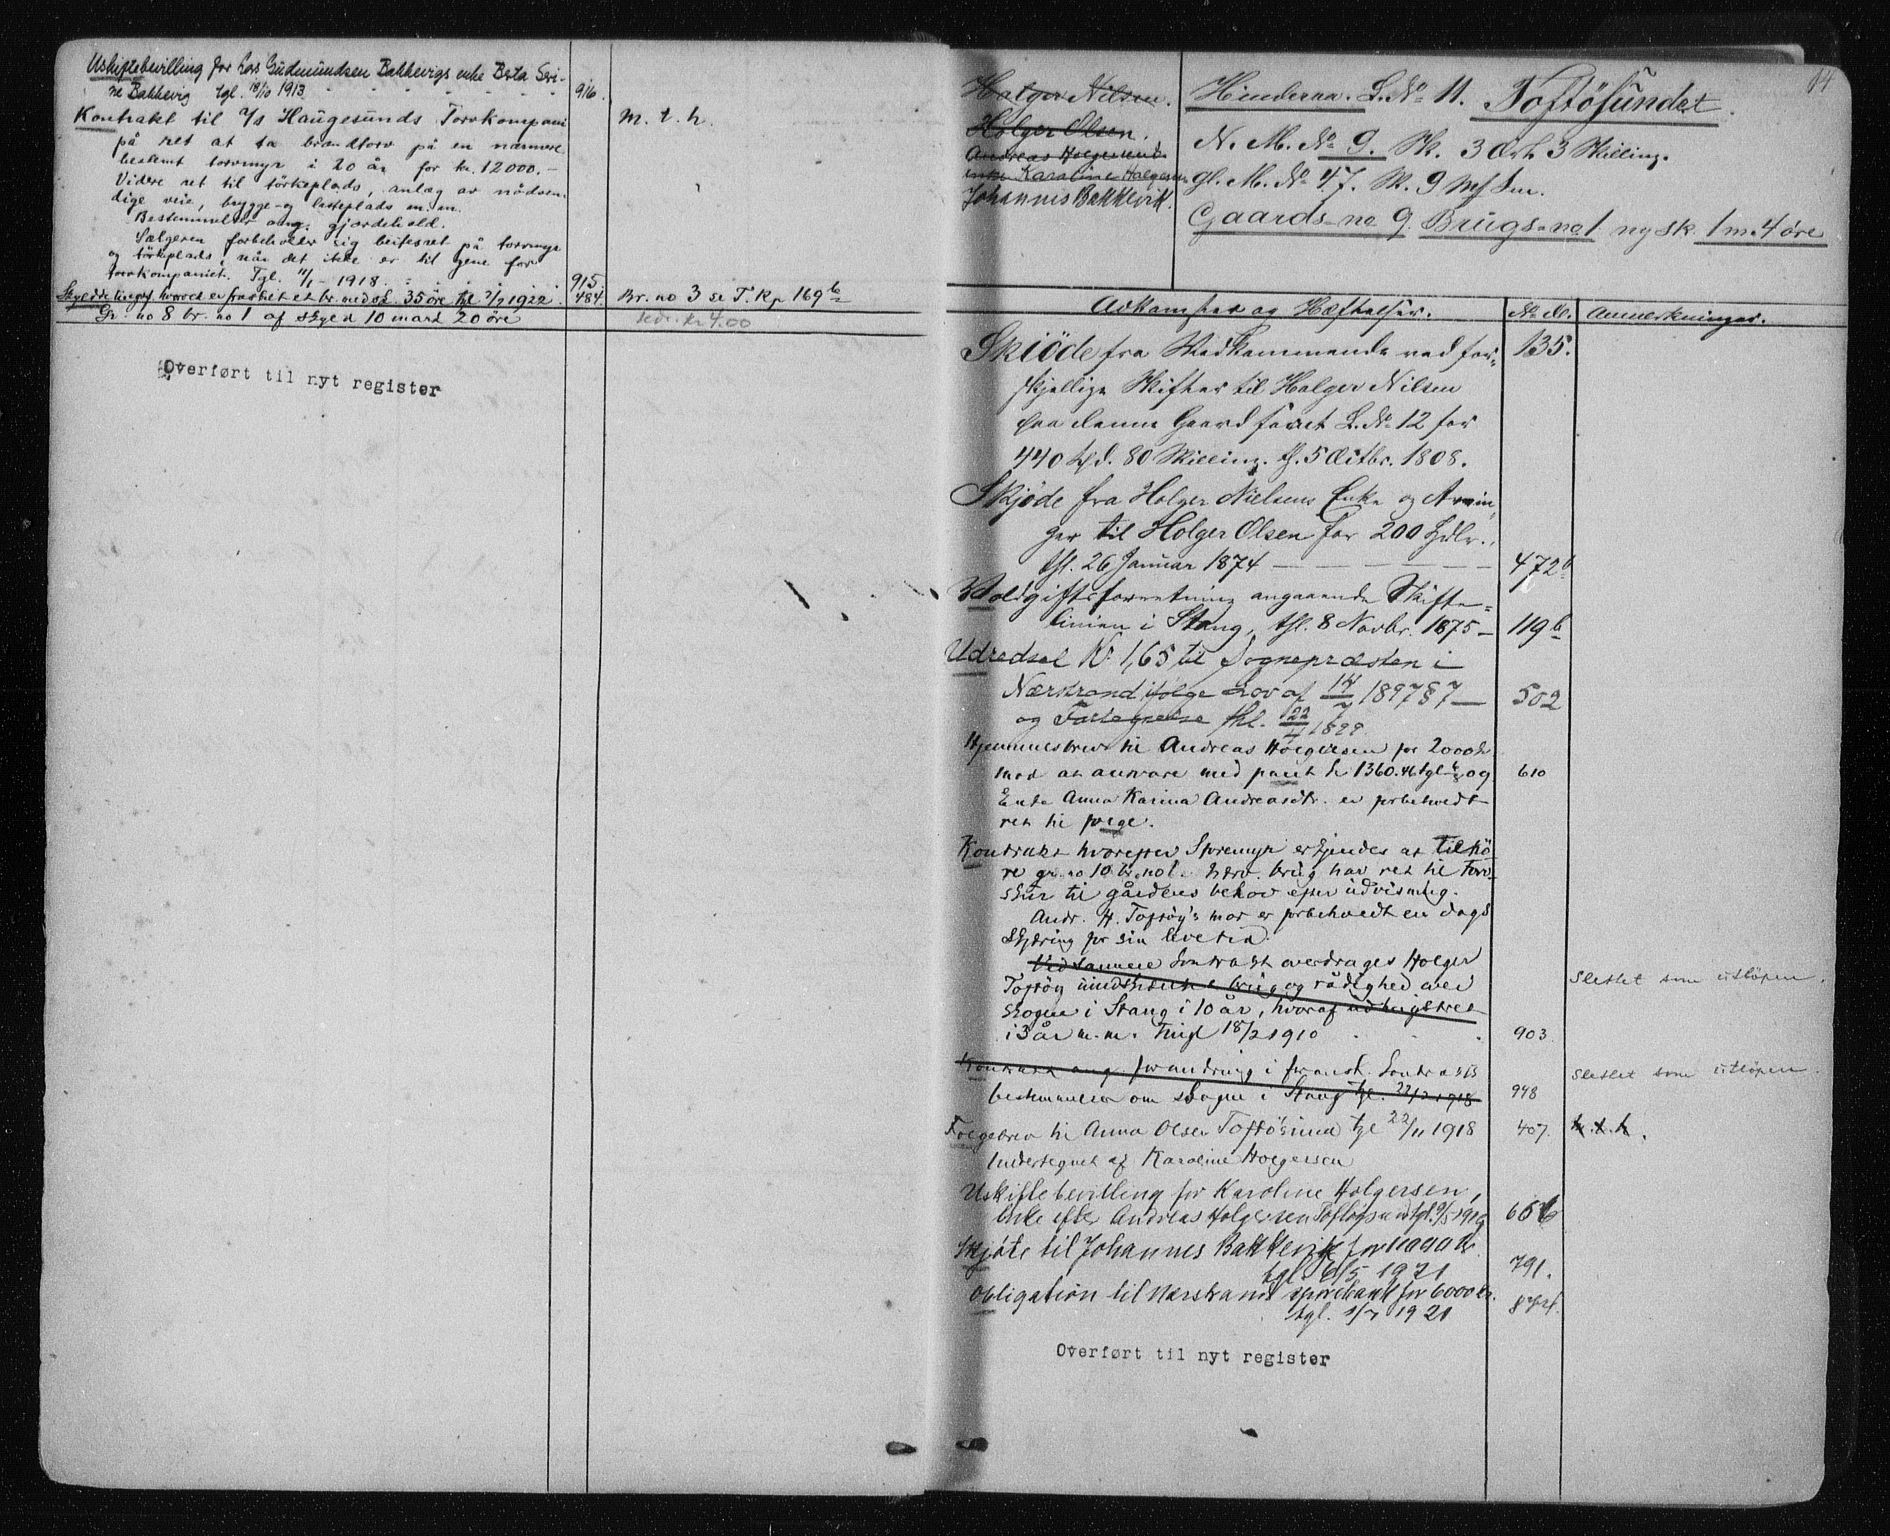 Uskiftebevilling for Lars Gudmundsen Bakkevigs enke Berta Seri-
ne Bakkevig tgl. 18/10 1913 916.
Kontrakt til A/s Haugesunds Torvkompani m. t. h.
på ret at ta brandtorv på en nærmere
bestemt torvmyr i 20 år for kr. 12000.-
Videre ret til törkeplads, anlæg av nödven-
dige veie, brygge- og losseplads m. m.
Bestemmelser ang. gjordehold.
Sælgeren forbeholder sig beitesret på torvmyr
og törkeplads, når det ikke er til gene for
torvkompaniet. Tgl. 11/1 - 1918 915.
Skylddelingsf. hvorved er fraskilt et br. med sk. 35 öre tgl 7/7 1922 484 Br. no 3 se T. Rg 169b
Gr. no 8 br. no 1 af skyld 10 mark 20 öre kr. 4.00
Overført til nyt register
14
Holger Nilsen.
Holger Olsen.
Andreas Holgersens
enke Karoline Holgersen
Johannis Bakkevik.
Hinderna. L. No 11. Toftösundet
N. M. No 9. Sk. 3 Ort 3 Skilling.
gl. M. No 47. Sk. 9 Mk Smr.
Gaards-no 9. Brugs-no 1 ny sk. 1 m. 4 öre
Adkomster og Hæftelser. No Fol. Anmærkninger.
Skiöde fra Vedkommende ved for- 135.
skjellige Skifter til Holger Nilsen
paa denne Gaard samt L. No 12 for
440 Spd. 80 Skilling. th. 5 Octbr. 1808.
Skjöde fra Holger Nielsens Enke og Arvin-
ger til Holger Olsen for 200 Spdlr.,
thl. 26 Januar 1874 472b
Voldgiftsforretning angaaende Skifte-
linien i Stang, thl. 8 Novbr. 1875 119b
Udredsel Kr 1,65 til Sognepræsten i
Nærstrand ifölge Lov af 14/7 1897 § 7 502
og Fortegnelse thl. 22/ 1899
Hjemmelsbrev til Andreas Holgersen for 2000 kr
mod at ansvare med pant kr 1360.46 tgl og 610
Enke Anna Karina Andreasdtr. er forbeholdt
ret til föege.
Kontrakt hvorefter Spremyr erkjendes at tilhö-
re gr. no 10 br. no 1. Nærv. brug har ret til Torv-
skur til gårdens behov efter udvisning.
Andr. H. Toftöy's mor er forbeholdt en dags
skjæring for sin levetid.
Ved samme kontrakt overdrages Holger
Toftöy uindskrænket brug og rådighed over slettet som utlöpen.
skogen i Stang i 10 år, hvoraf udbrugstret
i 3 år m. m. Tingl 18/2 1910 903
Kontrakt ang forandring i foranst. kontrakts slettet som utlöpen.
bestemmelser om skogen i Stang tgl. 22/2 1918 948
Folgebrev til Anna Olsen Toftösund tgl 22/11 1918 407. m.t.h.
Undertegnet af Karoline Holgersen
Uskiftebevilling for Karoline Holgersen,
Enke efter Andreas Holgersen Toftösund tgl. 9/5 1919 656
Skjöte til Johannes Bakkevik for 11000 kr.
tgl. 6/5 1921 791.
Obligation til Nærstrand sparebank for 6000 kr.
tgl. 1/7 1921
Overført til nyt register